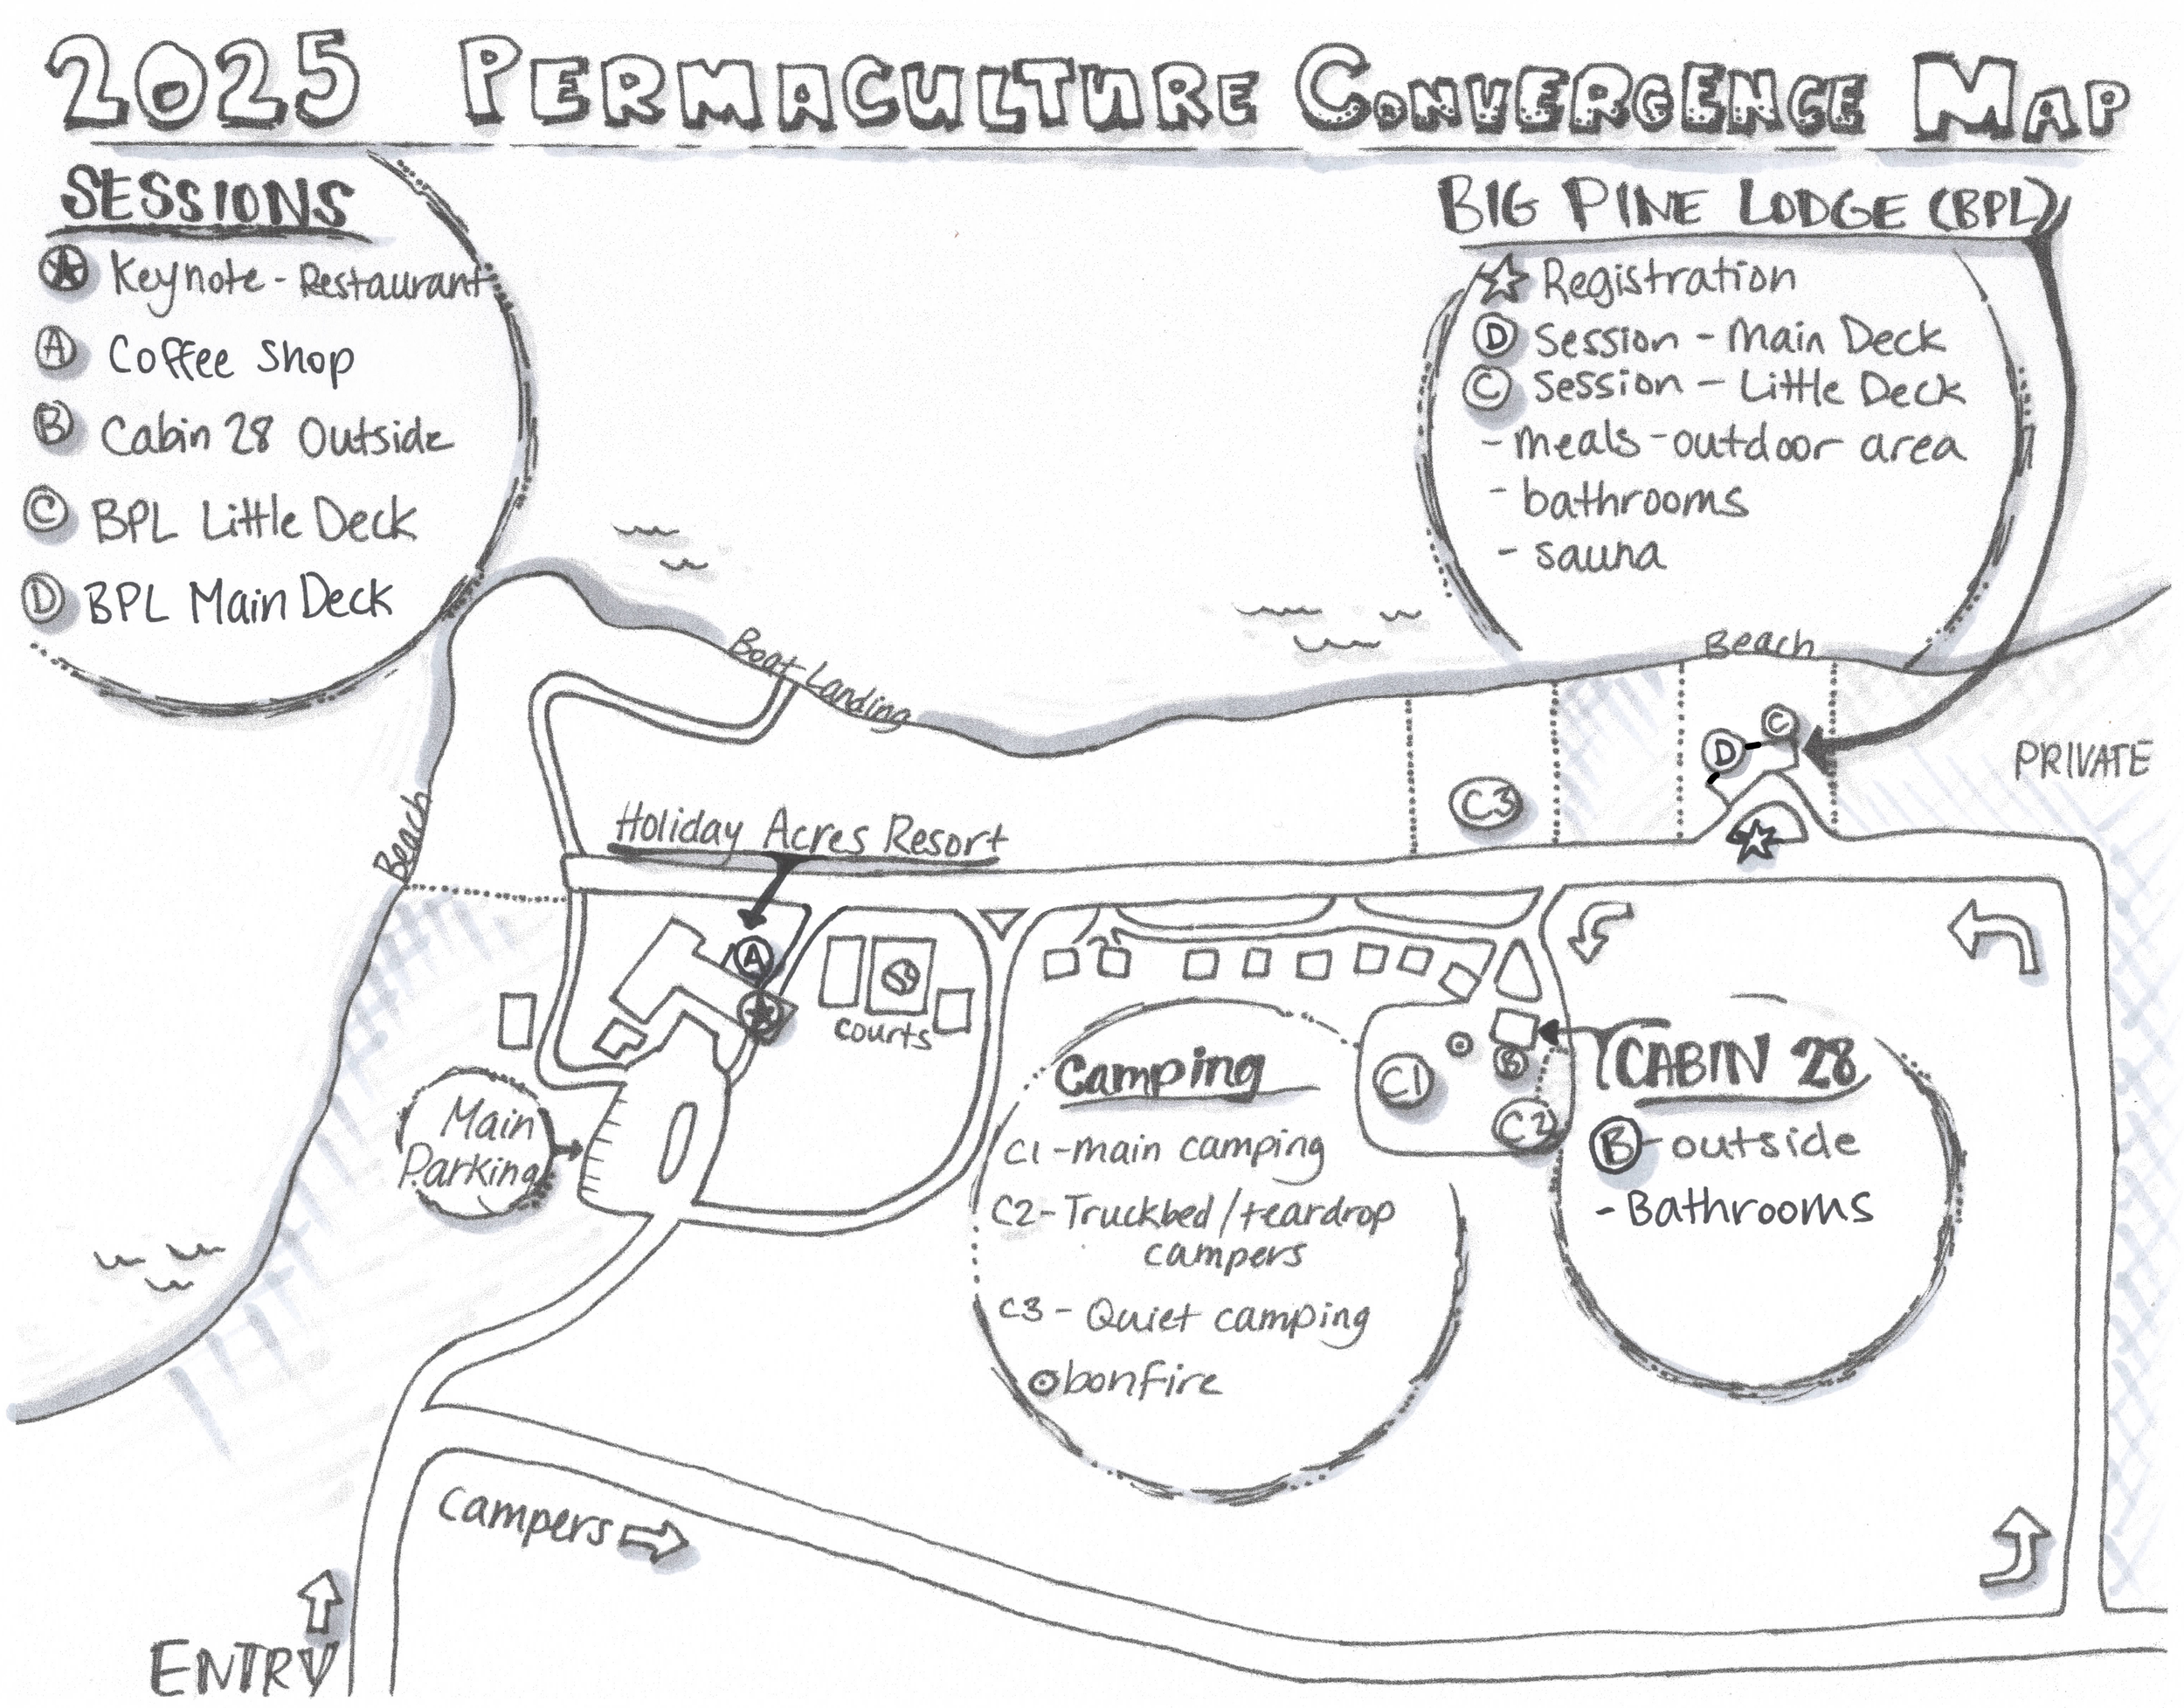 2025 PERMACULTURE CONVERGENCE MAP
SESSIONS
Keynote - Restaurant
A Coffee Shop
B Cabin 28 Outside
C BPL Little Deck
D BPL Main Deck
BIG PINE LODGE (BPL)
Registration
D Session - Main Deck
C Session - Little Deck
- meals - outdoor area
- bathrooms
- sauna
Boat Landing
Beach
PRIVATE
C
D
C3
Beach
Holiday Acres Resort
A
courts
Main
Parking
Camping
C1 - main camping
C2 - Truckbed / teardrop
campers
C3 - Quiet camping
bonfire
C1
B
C2
CABIN 28
B - outside
- Bathrooms
Campers
ENTRY